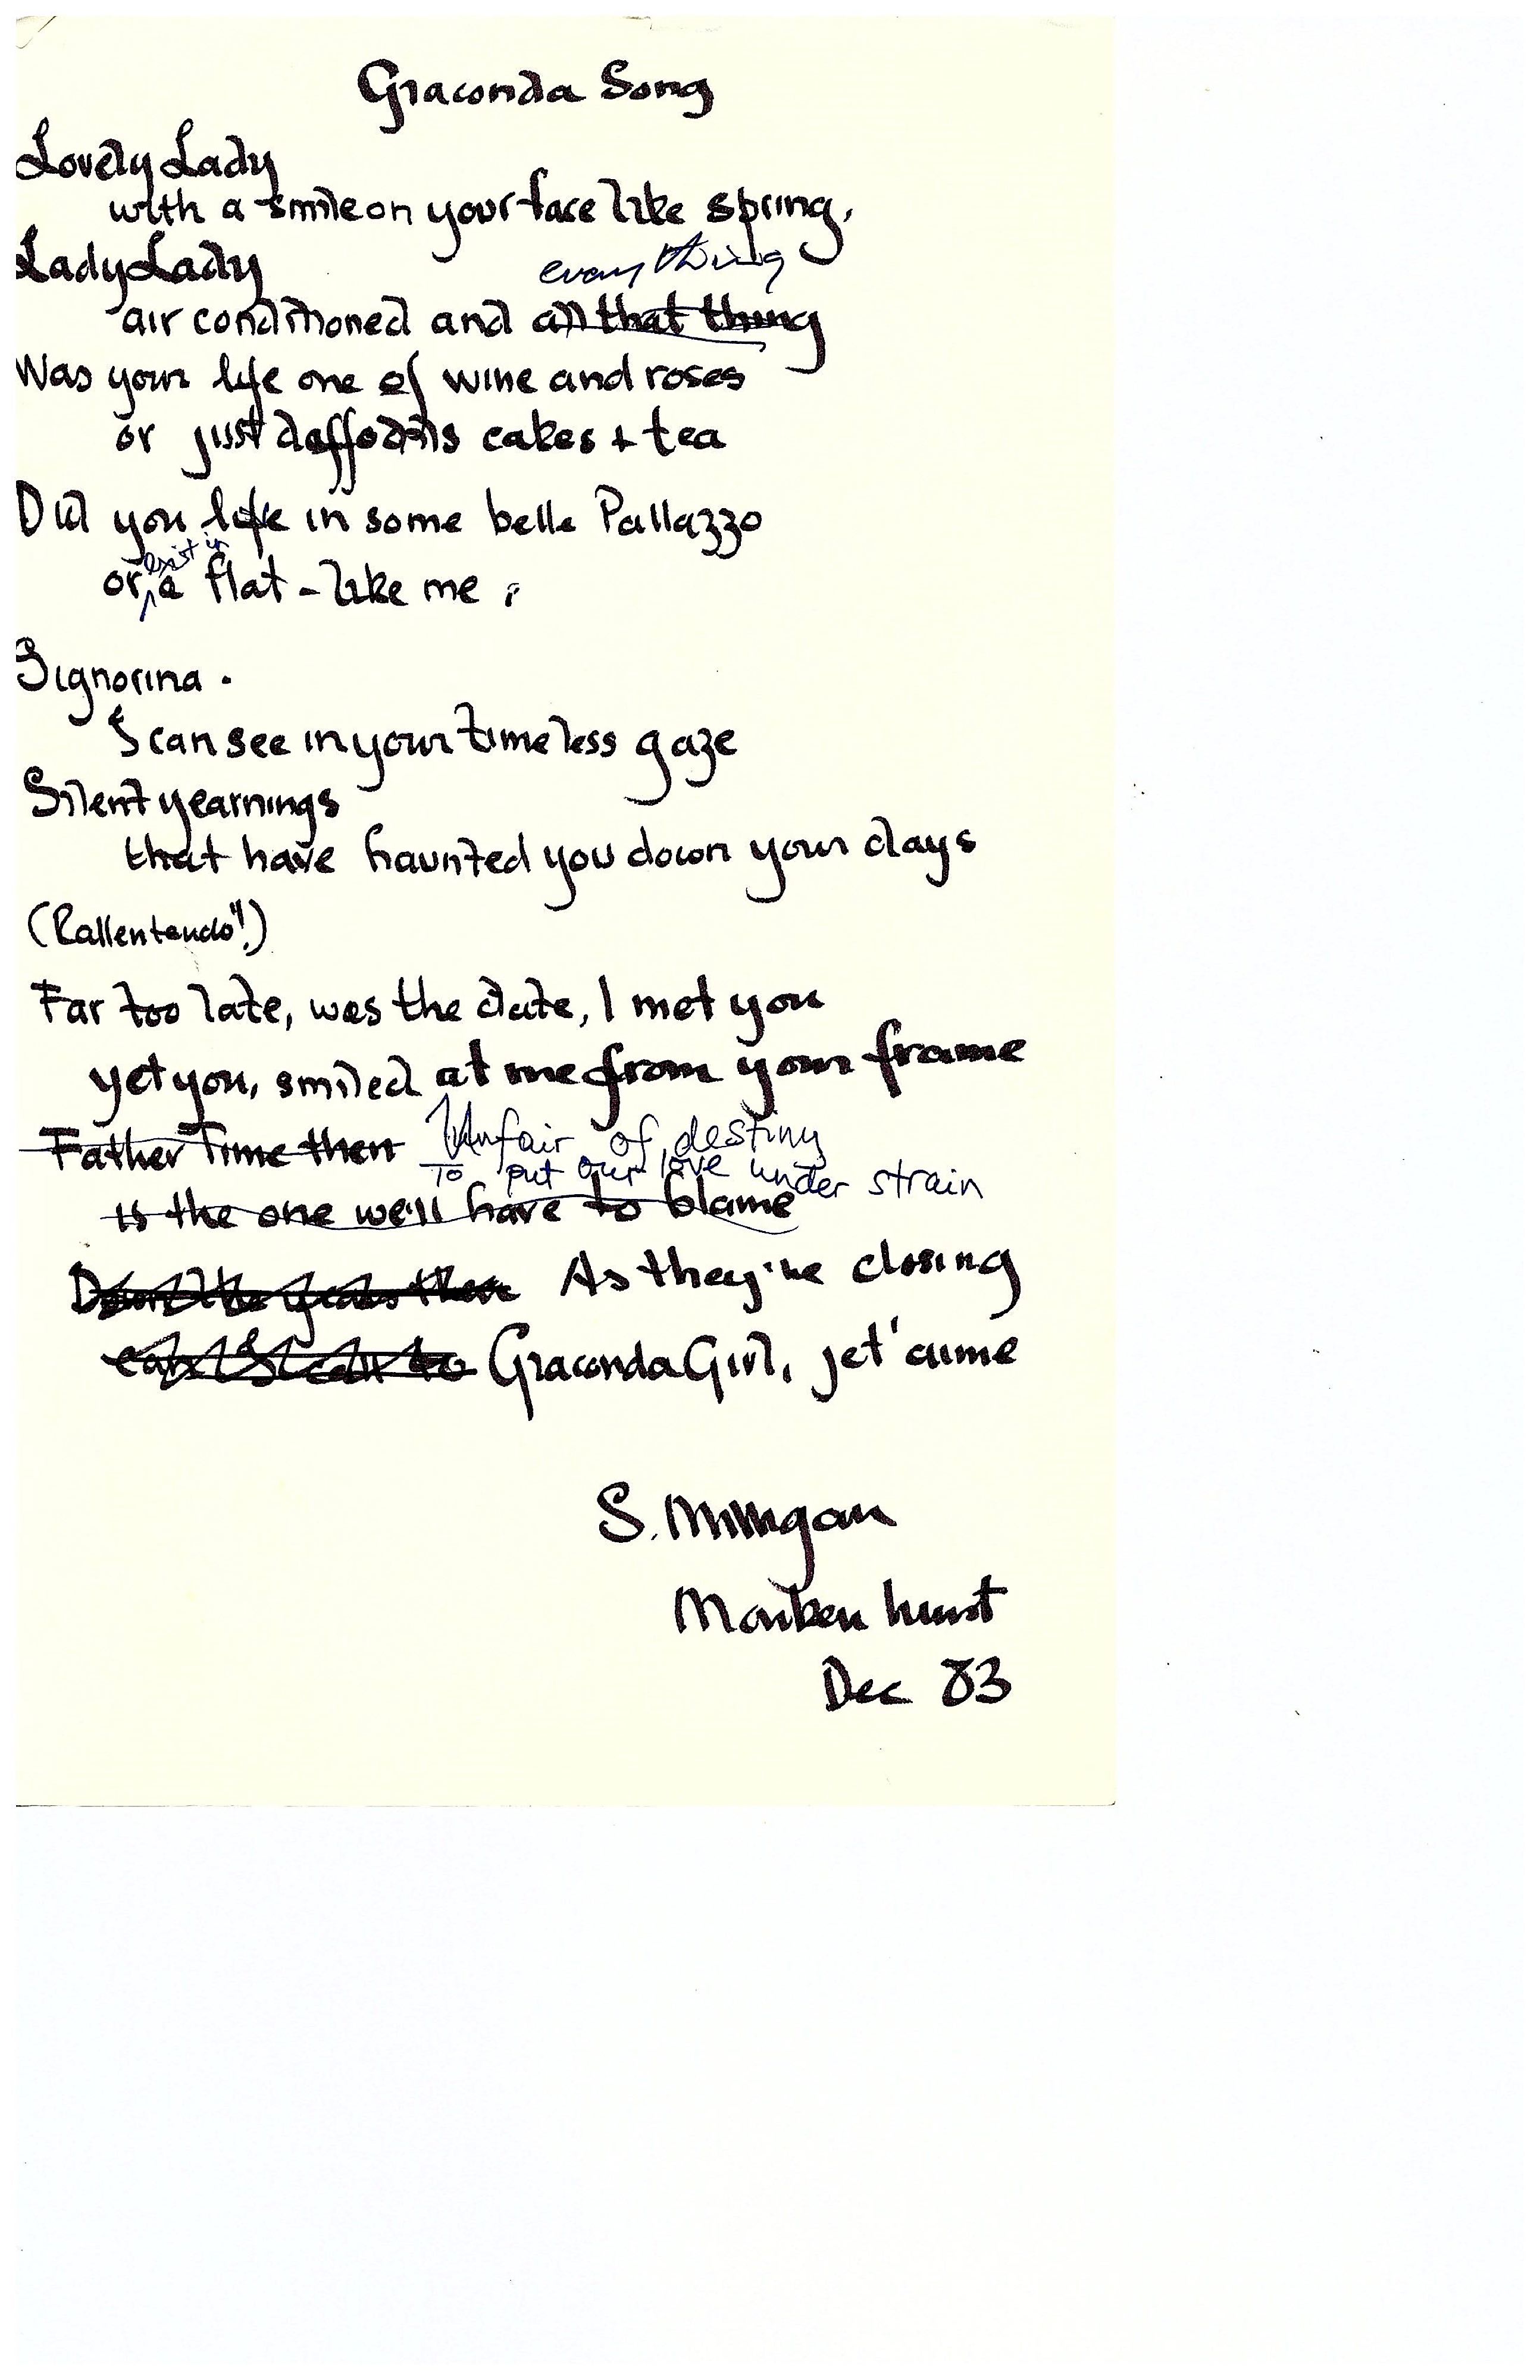 Giaconda Song
Lovely Lady
with a smile on your face like spring,
Lady Lady
everything
air conditioned and all that thing
Was your life one of wine and roses
or just daffodils cakes + tea
Did you life in some belle Pallazzo
exist in
or a flat - like me ?
Signorina .
I can see in your timeless gaze
Silent yearnings
that have haunted you down your days
(Rallentando!!)
Far too late, was the date, I met you
yet you, smiled at me from your frame
Father Time then Unfair of destiny
To put our love under strain
is the one we'll have to blame
Down the years then As they're closing
can I call to Giaconda Girl, je t'aime
S. Milligan
Monkenhurst
Dec 83